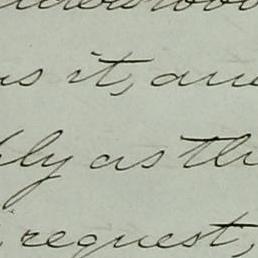 us it, and
ply as the
request,